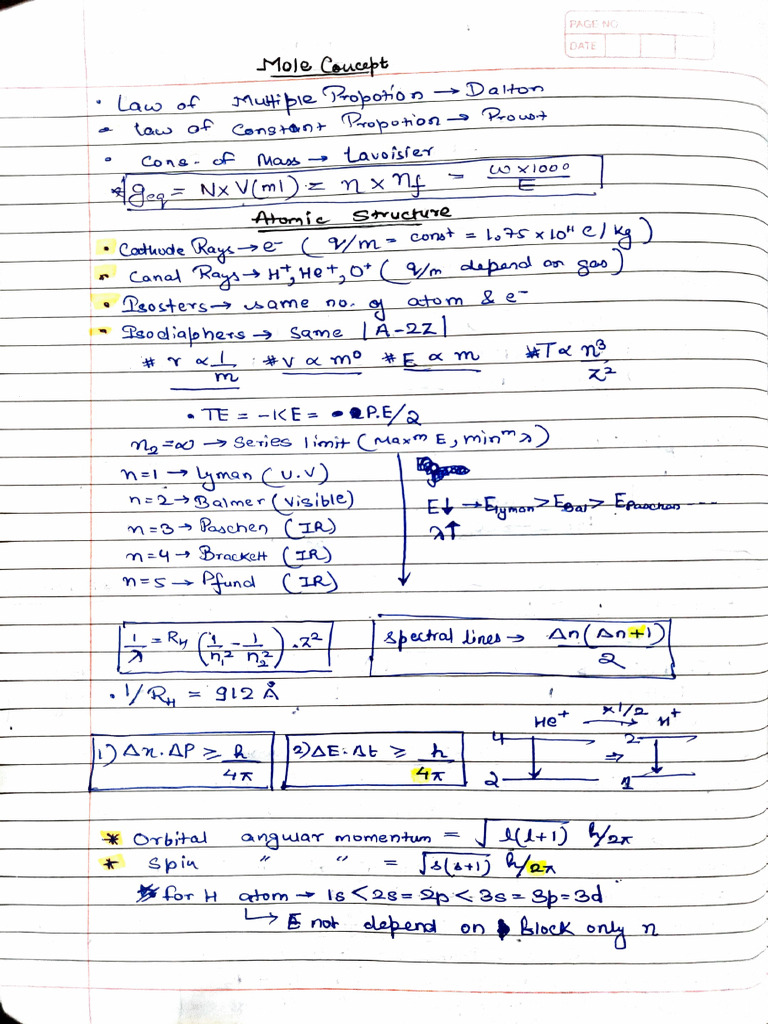 PAGE NO
DATE
Mole Concept
• Law of Multiple Propotion → Dalton
• Law of Constant Propotion → Proust
• Cons. of Mass → Lavoisier
* geq = N×V(ml) = n × nf = w×1000/E
Atomic Structure
• Cathode Rays → e⁻ ( q/m = const = 1.75 × 10¹¹ C/kg )
• Canal Rays → H⁺, He⁺, O⁺ ( q/m depend on gas )
• Isosters → same no. of atom & e⁻
• Isodiaphers → Same |A-2Z|
# r ∝ 1/m # V ∝ m⁰ # E ∝ m # T ∝ n³/z²
• TE = -KE = P.E/2
n₂=∞ → Series limit ( Maxᵐ E, minᵐ λ )
n=1 → Lyman (U.V)
n=2 → Balmer (visible)
n=3 → Paschen (IR)
n=4 → Brackett (IR)
n=5 → Pfund (IR)
E↓ → Elyman > EBal > EPaschan ----
λ↑
1/λ = RH (1/n₁² - 1/n₂²) . z²
Spectral lines → Δn(Δn+1)/2
• 1/RH = 912 Å
1) Δx . ΔP ≥ h/4π
2) ΔE . Δt ≥ h/4π
He⁺ ×1/2 → H⁺
4 2
⇒
2 1
* Orbital angular momentum = √l(l+1) h/2π
* Spin " " = √s(s+1) h/2π
* for H atom → 1s < 2s = 2p < 3s = 3p = 3d
↳ E not depend on Block only n